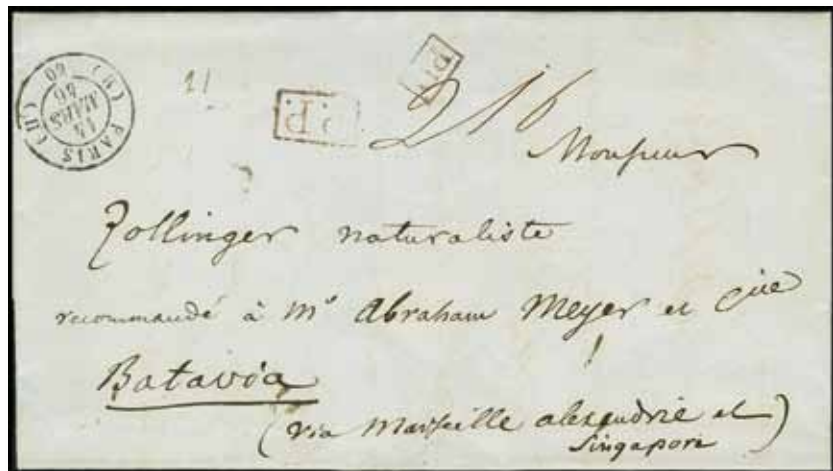 PARIS (H) 60
14
MARS
46
21
P.P.
P.P.
216
Monsieur
Zollinger naturaliste
recommandé à Mr Abraham Meyer et Cie
Batavia
(via Marseille alexandrie et
Singapore)